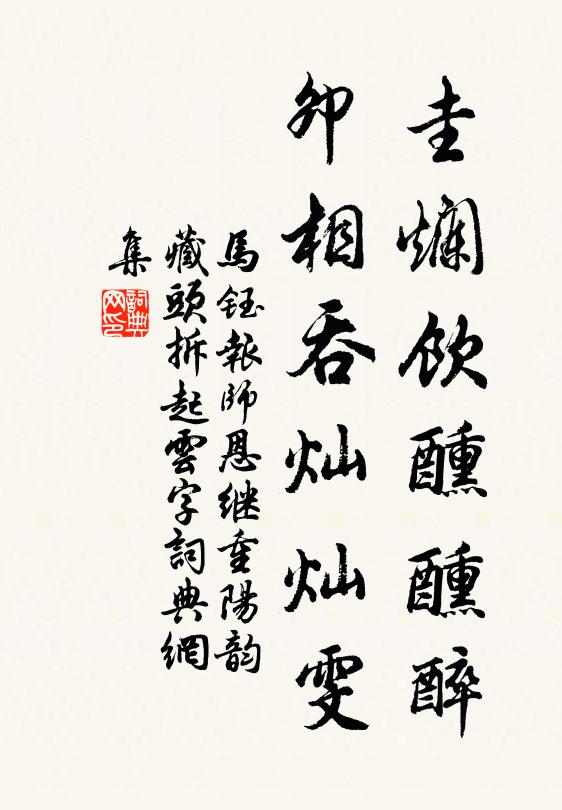 圭爛飲醺醺醉
卯相吞灿灿雯
馬鈺報師恩继重陽韵
藏頭拆起雲字詞典網
集
詞典网印